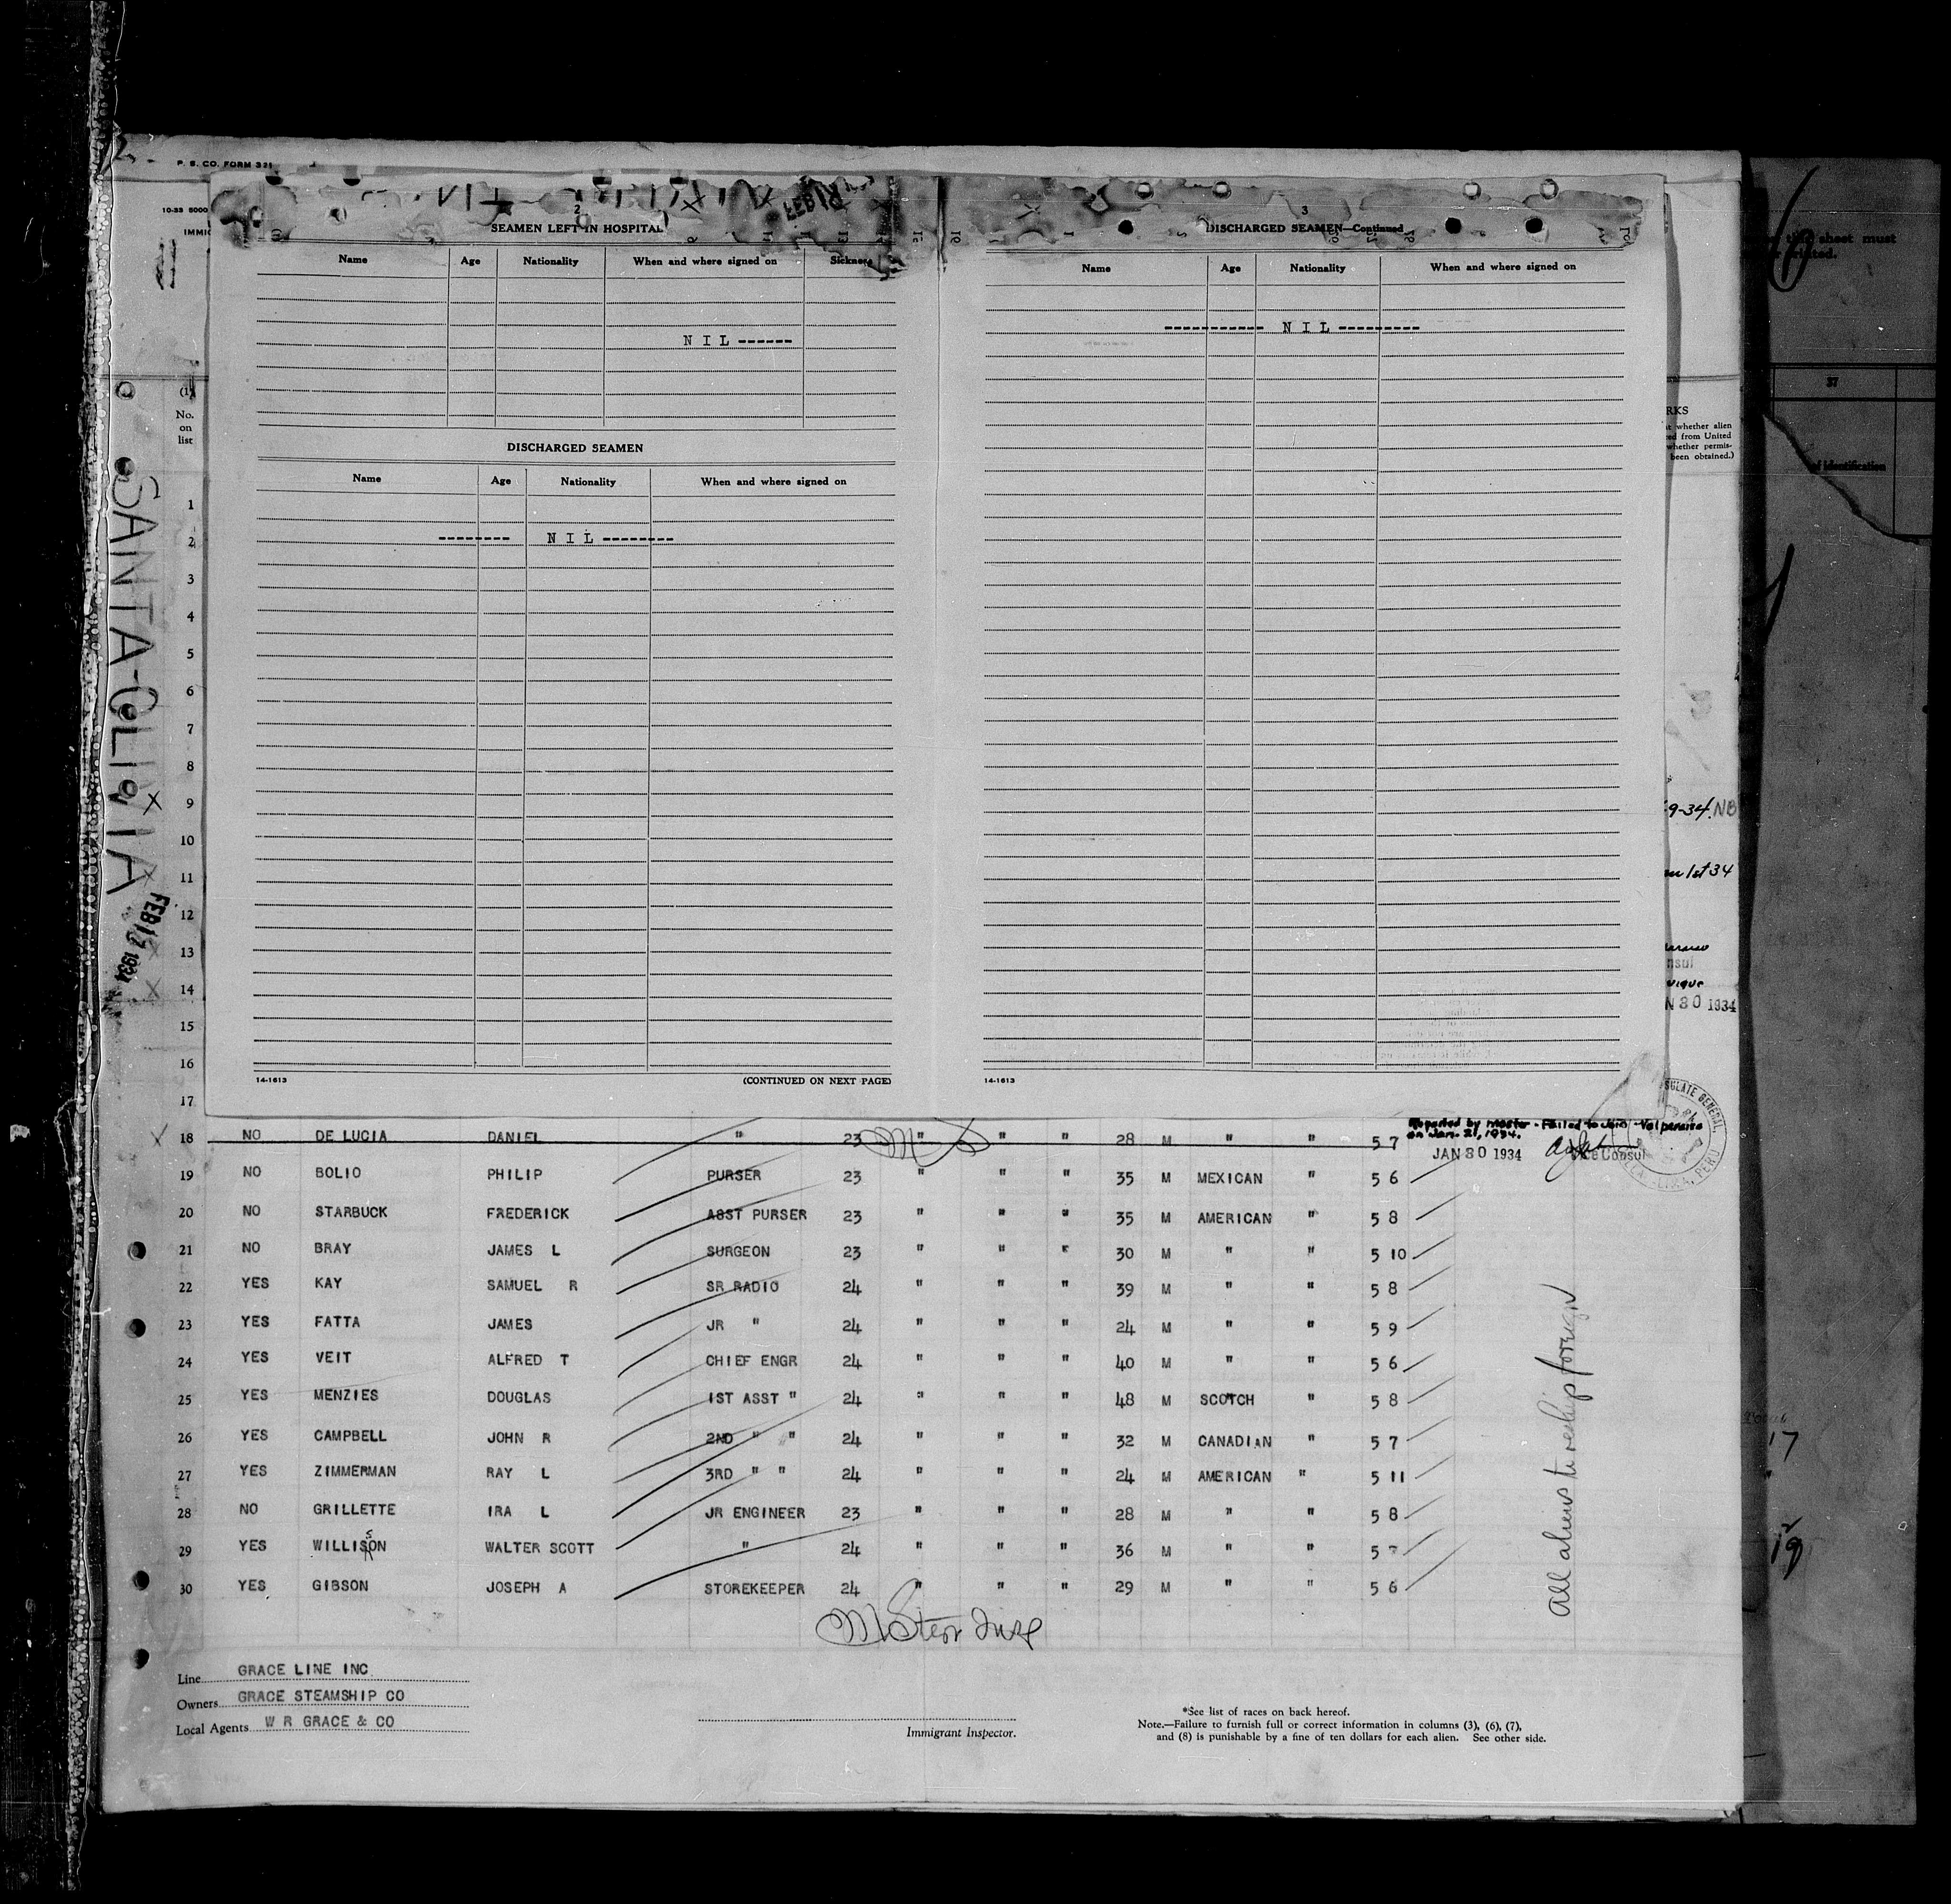 P. S. CO. FORM 321
10-33 5000
IMMIG
2
SEAMEN LEFT IN HOSPITAL
Name Age Nationality When and where signed on Sickness
NIL ------
DISCHARGED SEAMEN
Name Age Nationality When and where signed on
-------- NIL --------
14-1613 (CONTINUED ON NEXT PAGE)
3
DISCHARGED SEAMEN—Continued
Name Age Nationality When and where signed on
----------- NIL ---------
14-1613
sheet must
37
of identification
RKS
whether alien
ed from United
whether permis-
been obtained.)
9-34 NB
1st 34
nsul
N 30 1934
SANTA-OLIVIA
FEB 13 1934
(1)
No.
on
list
1
2
3
4
5
6
7
8
X 9
10
X 11
12
13
X 14
15
16
17
Reported by master - Failed to join - Valparaiso
on Jan. 21, 1934.
JAN 30 1934 Vice Consul
X 18 NO DE LUCIA DANIEL " 23 " " " 28 M " " 5 7
19 NO BOLIO PHILIP PURSER 23 " " " 35 M MEXICAN " 5 6
20 NO STARBUCK FREDERICK ASST PURSER 23 " " " 35 M AMERICAN " 5 8
21 NO BRAY JAMES L SURGEON 23 " " " 30 M " " 5 10
22 YES KAY SAMUEL R SR RADIO 24 " " " 39 M " " 5 8
23 YES FATTA JAMES JR " 24 " " " 24 M " " 5 9
24 YES VEIT ALFRED T CHIEF ENGR 24 " " " 40 M " " 5 6
25 YES MENZIES DOUGLAS 1ST ASST " 24 " " " 48 M SCOTCH " 5 8
26 YES CAMPBELL JOHN R 2ND " " 24 " " " 32 M CANADIAN " 5 7
27 YES ZIMMERMAN RAY L 3RD " " 24 " " " 24 M AMERICAN " 5 11
28 NO GRILLETTE IRA L JR ENGINEER 23 " " " 28 M " " 5 8
29 YES WILLISON WALTER SCOTT " 24 " " " 36 M " " 5 7
30 YES GIBSON JOSEPH A STOREKEEPER 24 " " " 29 M " " 5 6
All aliens to reship foreign
Line GRACE LINE INC
Owners GRACE STEAMSHIP CO
Local Agents W R GRACE & CO
Immigrant Inspector.
*See list of races on back hereof.
Note.—Failure to furnish full or correct information in columns (3), (6), (7),
and (8) is punishable by a fine of ten dollars for each alien. See other side.